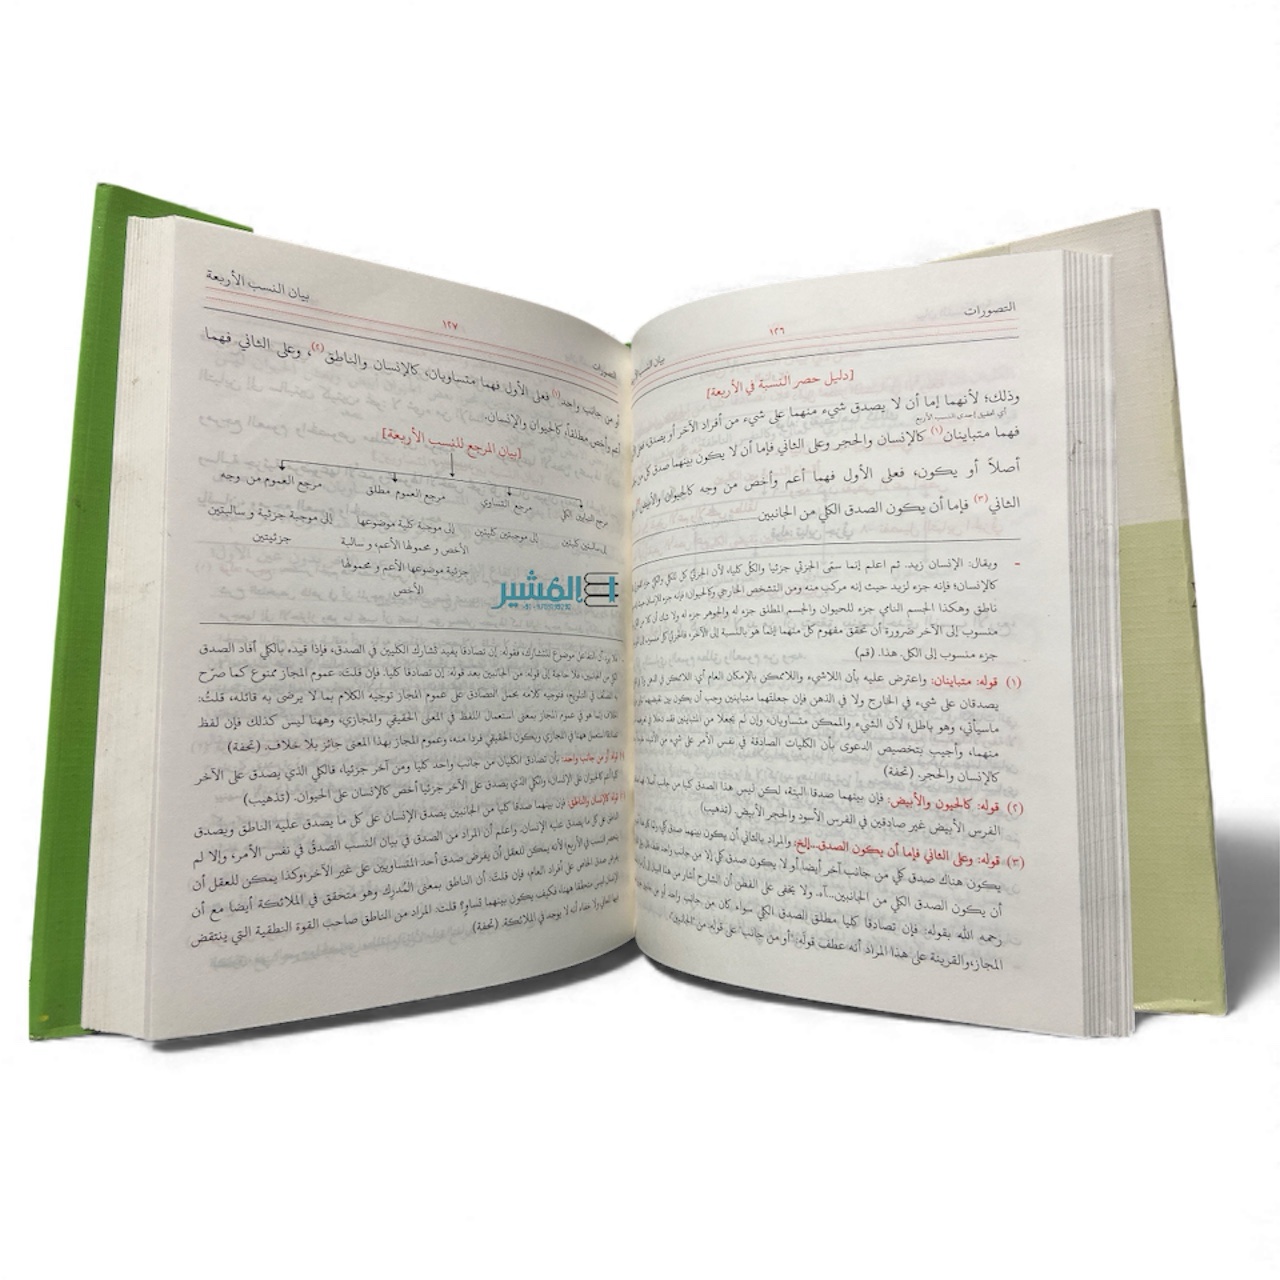 التصورات
١٢٦
بيان النسب
[دليل حصر النسبة في الأربعة]
وذلك؛ لأنهما إما أن لا يصدق شيء منهما على شيء من أفراد الآخر أو يصدق،
أي تحقيق إحدى النسب الأربع
فهما متباينان(١) كالإنسان والحجر وعلى الثاني فإما أن لا يكون بينهما صدق كل من
أصلاً أو يكون، فعلى الأول فهما أعم وأخص من وجه كالحيوان والأبيض
الثاني(٣) فإما أن يكون الصدق الكلي من الجانبين
- ويقال: الإنسان زيد. ثم اعلم إنما سمّى الجزئي جزئيا والكلّ كليا، لأن الجزئيّ كل للكلي والكلي جزء
كالإنسان؛ فإنه جزء لزيد حيث إنه مركب منه ومن التشخص الخارجي وكالحيوان؛ فإنه جزء للإنسان
ناطق وهكذا الجسم النامي جزء للحيوان والجسم المطلق جزء له والجوهر جزء له ولا شك أن
منسوب إلى الآخر ضرورة أن تحقق مفهوم كل منهما إنما هو بالنسبة إلى الآخر، فالجزئي كل منسوب إلى
جزء منسوب إلى الكل. هذا. (قم)
(١) قوله: متباينان: واعترض عليه بأن اللاشيء واللاممكن بالإمكان العام أي اللاممكن في الذهن
يصدقان على شيء في الخارج ولا في الذهن فإن جعلتهما متباينين وجب أن يكون بين
ماسيأتي، وهو باطل؛ لأن الشيء والممكن متساويان، وإن لم يجعلا من المتباينين فقد
منهما، وأجيب بتخصيص الدعوى بأن الكليات الصادقة في نفس الأمر على شيء من
كالإنسان والحجر. (تحفة)
(٢) قوله: كالحيون والأبيض: فإن بينهما صدقا البتة، لكن ليس هذا الصدق كليا من جانب أصلا
الفرس الأبيض غير صادقين في الفرس الأسود والحجر الأبيض. (تذهيب)
(٣) قوله: وعلى الثاني فإما أن يكون الصدق...إلخ: والمراد بالثاني أن يكون بينهما صدق كلي
يكون هناك صدق كلي من جانب آخر أيضا أو لا يكون صدق كلي إلا من جانب واحد
أن يكون الصدق الكلي من الجانبين...آه. ولا يخفى على الفطن أن الشارح أشار من هذا
رحمه الله بقوله: فإن تصادقا كليا مطلق الصدق الكلي سواء كان من جانب واحد أو من
المجاز، والقرينة على هذا المراد أنه عطف قوله: "أو من جانب على قوله: من الجانبين".
بيان النسب الأربعة
١٢٧
التصورات
أو من جانب واحد(١) فعلى الأول فهما متساويان، كالإنسان والناطق(٢)، وعلى الثاني فهما
أعم وأخص مطلقاً، كالحيوان والإنسان.
[بيان المرجع للنسب الأربعة]
مرجع التباين الكلي مرجع التساوي مرجع العموم مطلق مرجع العموم من وجه
إلى سالبتين كليتين إلى موجبتين كليتين إلى موجبة كلية موضوعها إلى موجبة جزئية و سالبتين
الأخص و محمولها الأعم، و سالبة جزئيتين
جزئية موضوعها الأعم و محمولها
الأخص
المشير
أن التفاعل موضوع للتشارك، فقوله: إن تصادقا يفيد تشارك الكليين في الصدق، فإذا قيده بالكلي أفاد الصدق
من الجانبين، فلا حاجة إلى قوله: من الجانبين بعد قوله: إن تصادقا كليا. فإن قلت: عموم المجاز ممنوع كما صرّح
في التلويح، فتوجيه كلامه بحمل التصادق على عموم المجاز توجيه الكلام بما لا يرضى به قائله، قلتُ:
إنما هو في عموم المجاز بمعنى استعمال اللفظ في المعنى الحقيقي والمجازي، وههنا ليس كذلك فإن لفظ
استعمل ههنا في المجازي ويكون الحقيقي فردا منه، وعموم المجاز بهذا المعنى جائز بلا خلاف. (تحفة)
قوله أو من جانب واحد: بأن تصادق الكليان من جانب واحد كليا ومن آخر جزئيا، فالكلي الذي يصدق على الآخر
كليا أعم كالحيوان على الإنسان، والكلي الذي يصدق على الآخر جزئيا أخص كالإنسان على الحيوان. (تذهيب)
قوله كالإنسان والناطق: فإن بينهما صدقا كليا من الجانبين يصدق الإنسان على كل ما يصدق عليه الناطق ويصدق
الناطق على كل ما يصدق عليه الإنسان. واعلم أن المراد من الصدق في بيان النسب الصدق في نفس الأمر، وإلا لم
ينحصر النسب في الأربع؛ لأنه يمكن للعقل أن يفرض صدق أحد المتساويين على غير الآخر، وكذا يمكن للعقل أن
يفرض صدق الخاص على أفراد العام، فإن قلت: أن الناطق بمعنى المُدرِك وهو متحقق في الملائكة أيضا مع أن
الإنسان ليس متحققا ههنا، فكيف يكون بينهما تساوٍ؟ قلت: المراد من الناطق صاحب القوة النطقية التي ينتقض
فيها المعاني ولا خفاء أنه لا يوجد في الملائكة. (تحفة)